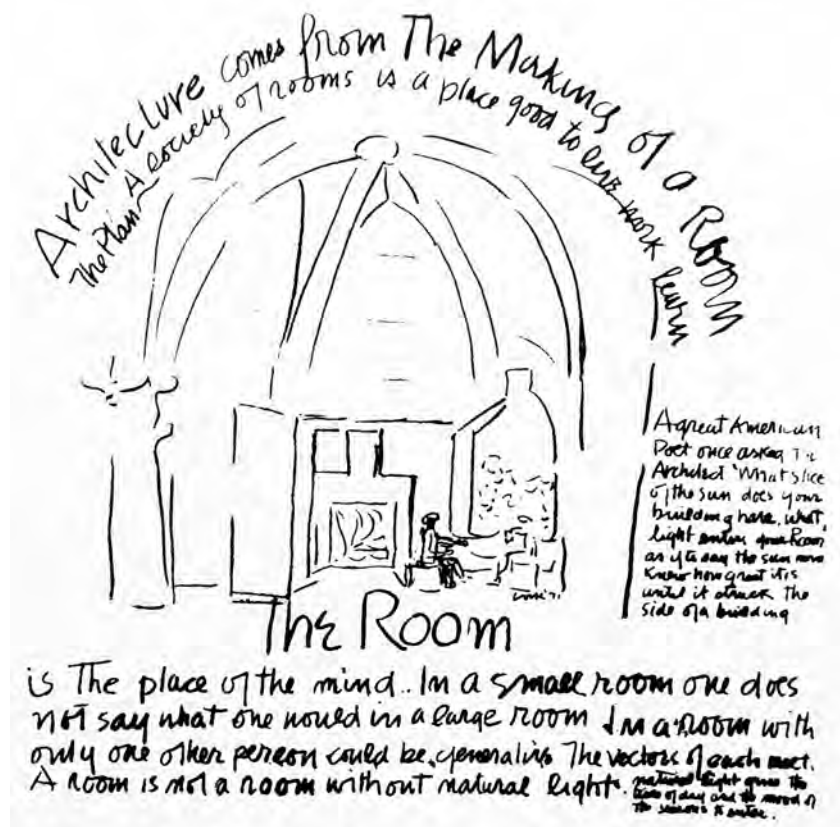 Architecture comes from The Making of a Room
The Plan – A society of rooms is a place good to live work learn
A great American
Poet once asked The
Architect 'What slice
of the sun does your
building have. what
light enters your Room
as if to say the sun never
knew how great it is
until it struck the
side of a building
The Room
is The place of the mind. In a small room one does
not say what one would in a large room In a room with
only one other person could be generative The vectors of each meet.
A room is not a room without natural light.
natural light gives the
time of day and the mood of
the seasons to enter.